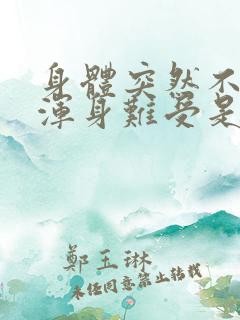 身體突然不
渾身難受是
鄭玉琳
未經同意禁止轉載